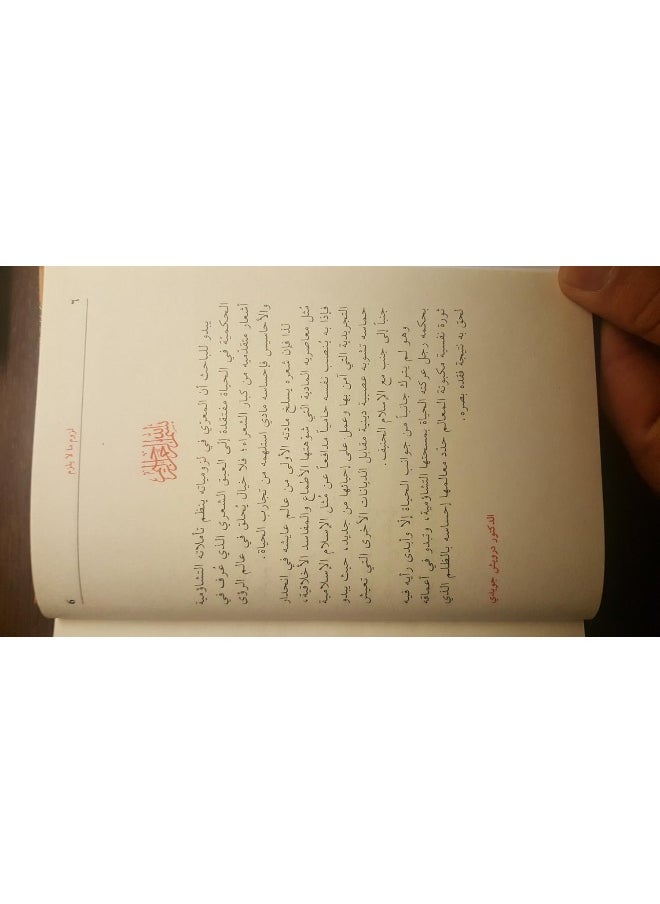 6 لزوم ما لا يلزم ٦
بسم الله الرحمن الرحيم
يبدو للباحث أن المعرّي في لزومياته ينظم تأملاته التشاؤمية
الحكميّة في الحياة مفتقدة إلى العبق الشعري الذي عُرف في
أشعار متقدّميه من كبار الشعراء؛ فلا خيال يُحلق في عالم الرؤى
والأحاسيس فإحساسه مادي استلهمه من تجارب الحياة.
لذا فإن شعره يسلخ مادته الأولى من عالم عايشه في انحدار
مُثل معاصريه المادية التي شوّهتها الأطماع والمفاسد الأخلاقية،
فإذا به يُنصب نفسه حامياً مدافعاً عن مُثل الإسلام الإسلامية
التجريدية التي آمن بها وعمل على إحيائها من جديد، حيث يبدو
حماسه تشوبه عصبية دينية مقابل الديانات الأخرى التي تعيش
جنباً إلى جنب مع الإسلام الحنيف.
وهو لم يترك جانباً من جوانب الحياة إلّا وأبدى رأيه فيه
بحكمه رجل عركته الحياة بمسحتها التشاؤمية، وتبدو في أعماقه
ثورة نفسية مكبوتة المعالم حدد معالمها إحساسه بالظلم الذي
لحق به نتيجة فقده بصره.
الدكتور درويش جويدي